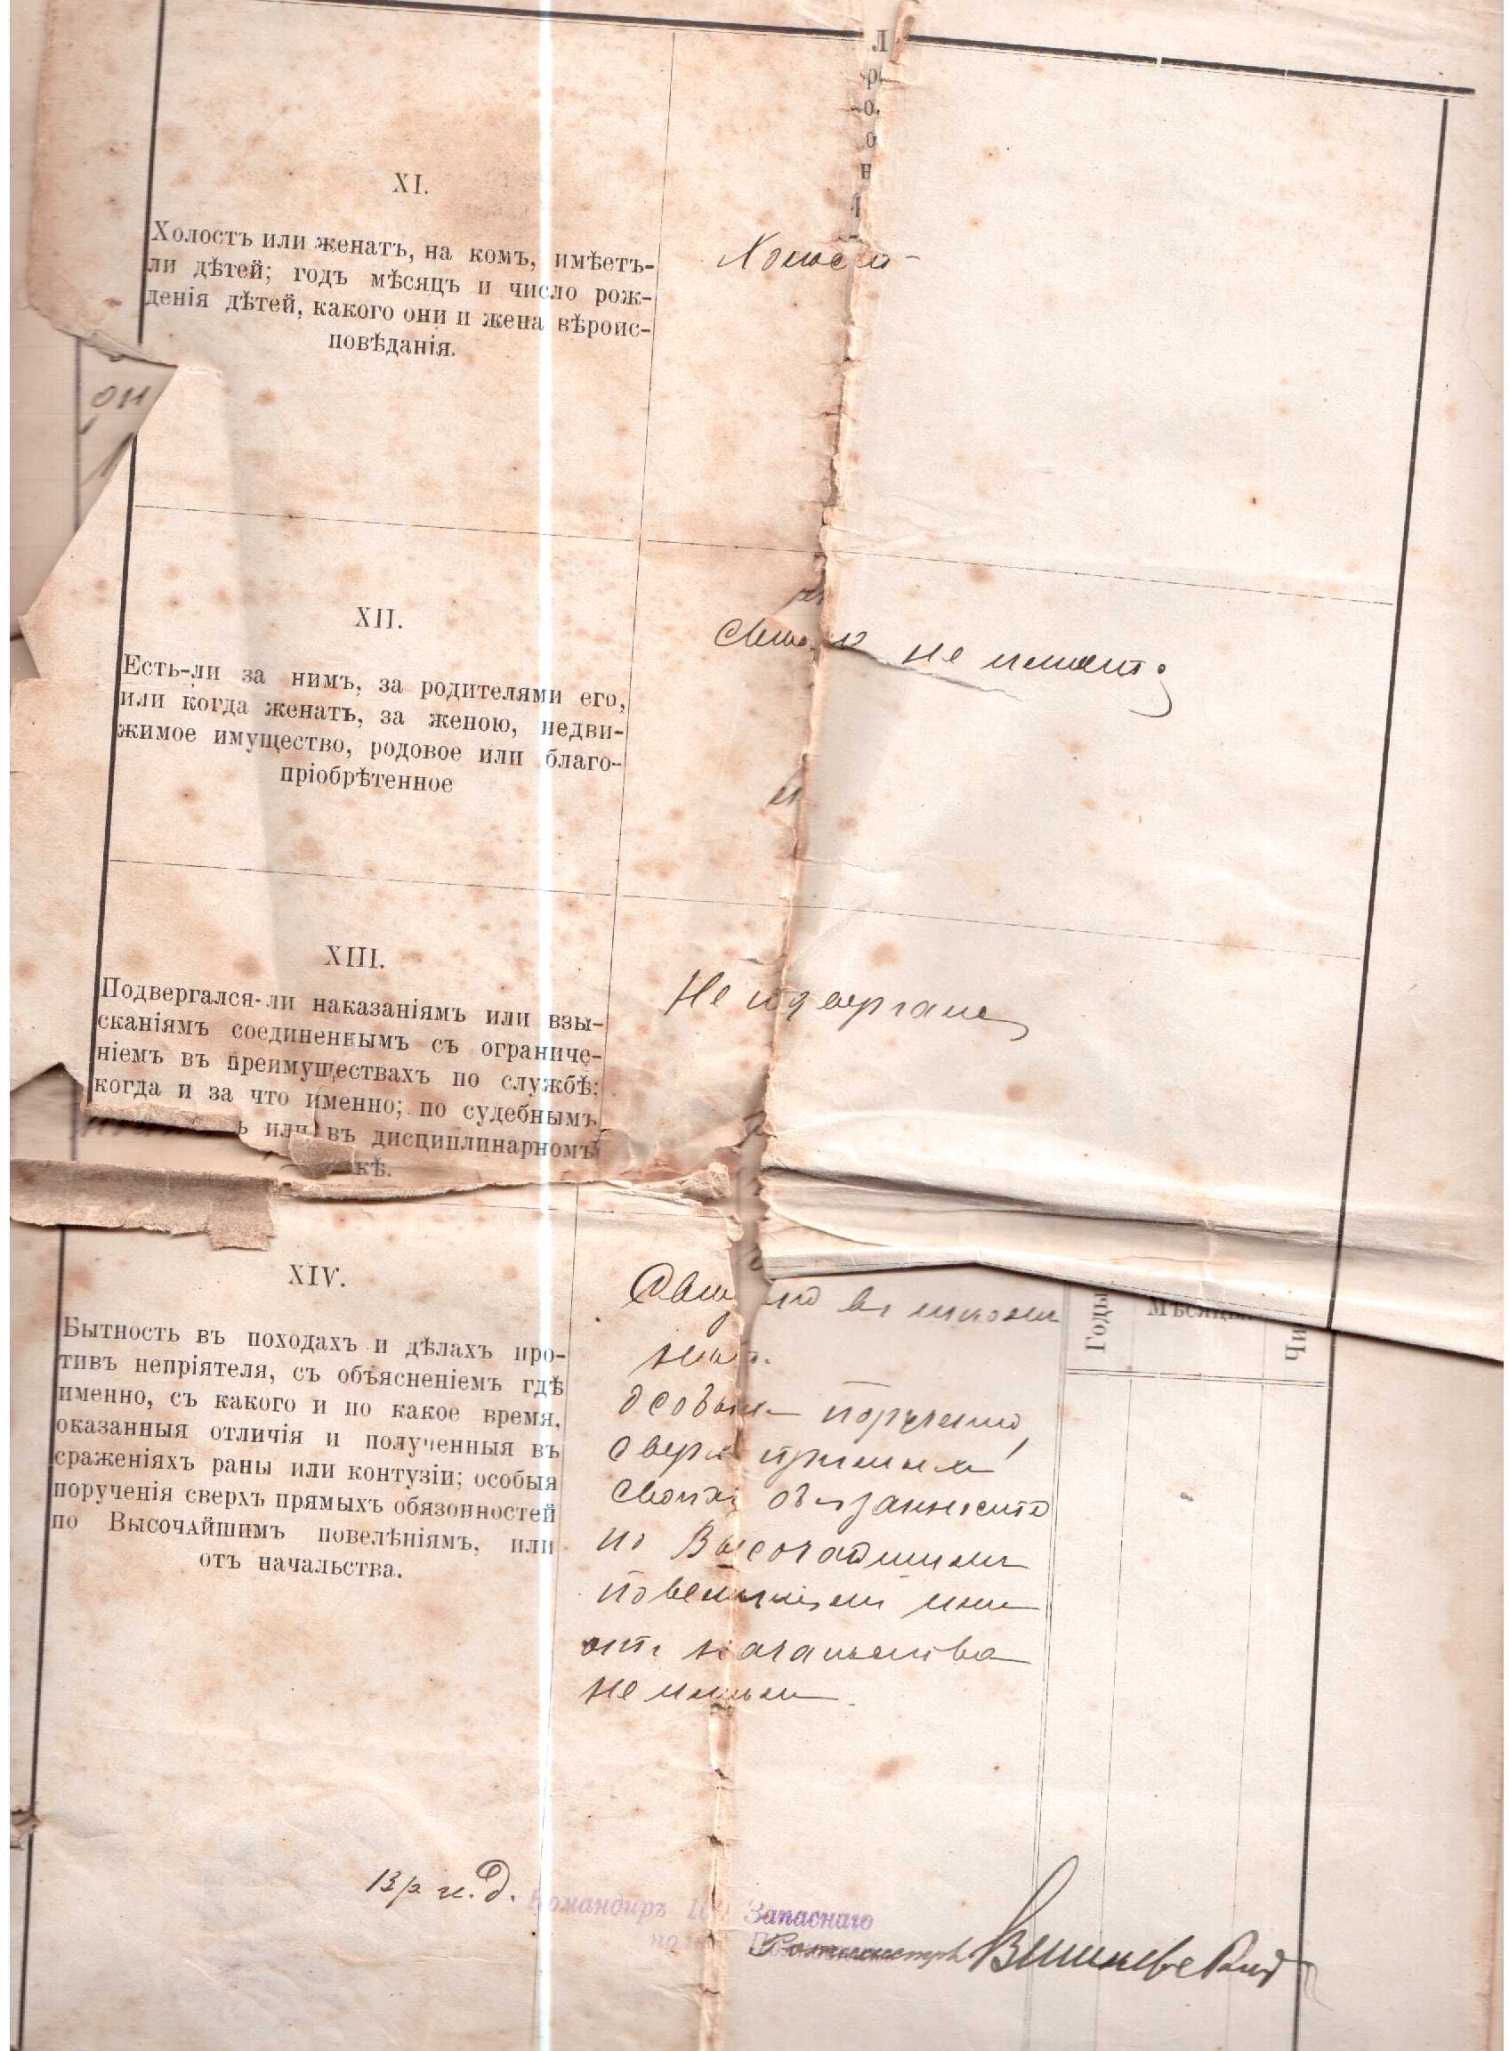 XI.
Холостъ или женатъ, на комъ, имѣетъ-
ли дѣтей; годъ мѣсяцъ и число рож-
денія дѣтей, какого они и жена вѣроис-
повѣданія.
Холостъ
XII.
Есть-ли за нимъ, за родителями его,
или когда женатъ, за женою, недви-
жимое имущество, родовое или благо-
пріобрѣтенное
не имеется
XIII.
Подвергался-ли наказаніямъ или взы-
сканіямъ соединеннымъ съ ограниче-
ніемъ въ преимуществахъ по службѣ;
когда и за что именно; по судебнымъ
или въ дисциплинарномъ
кѣ.
Не подвергался
XIV.
Бытность въ походахъ и дѣлахъ про-
тивъ непріятеля, съ объясненіемъ гдѣ
именно, съ какого и по какое время,
оказанныя отличія и полученныя въ
сраженіяхъ раны или контузіи; особыя
порученія сверхъ прямыхъ обязонностей
по ВЫСОЧАЙШИМЪ повелѣніямъ, или
отъ начальства.
Годы
Мѣсяцы
Чи
особыхъ порученій
сверхъ прямыхъ
своихъ обязанностей
по Высочайшимъ
повелѣніямъ или
отъ начальства
не имѣлъ
Вр. и. д. Командиръ Запаснаго
Ротмистръ Вишневскій